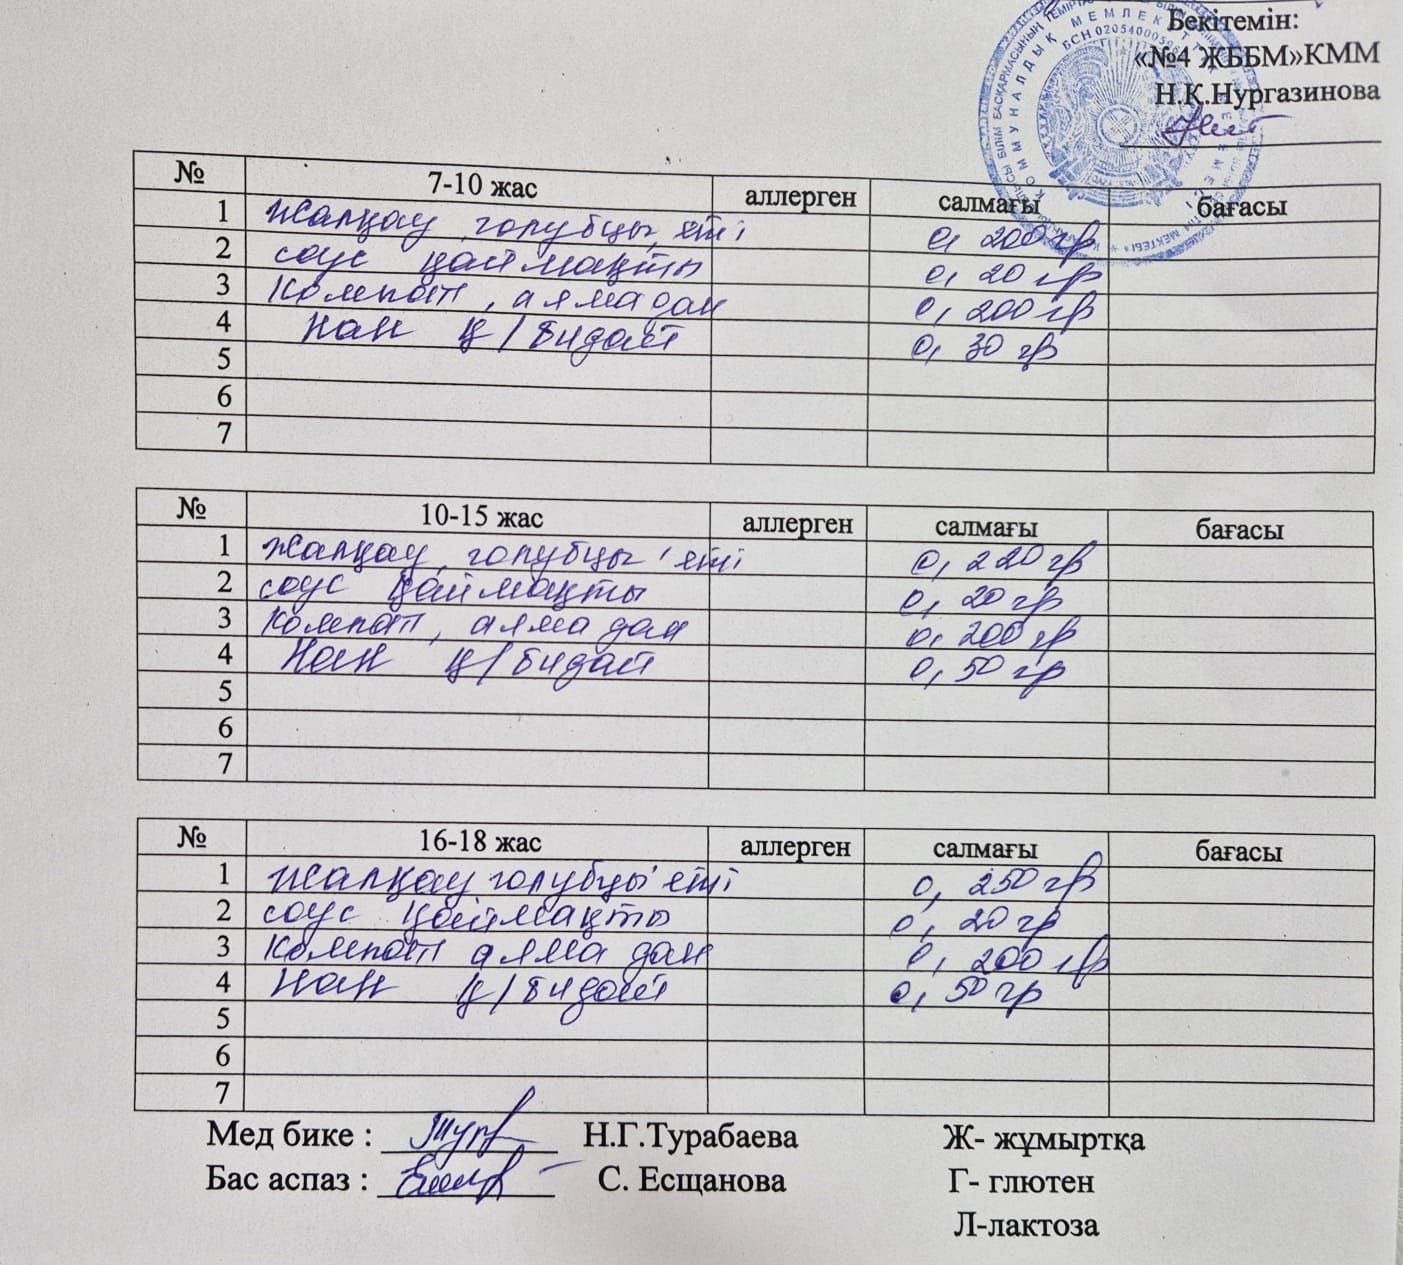 Бекітемін:
«№4 ЖББМ»КММ
Н.Қ.Нургазинова
БСН 0205400050
КОММУНАЛДЫҚ МЕМЛЕКЕТТІК МЕКЕМЕСІ
№ 7-10 жас аллерген салмағы бағасы
1 Жалқау голубцы, етті 0, 200 гр
2 соус қаймақты 0, 20 гр
3 Компот, алмадан 0, 200 гр
4 Нан қ/бидай 0, 30 гр
5
6
7
№ 10-15 жас аллерген салмағы бағасы
1 Жалқау голубцы, етті 0, 220 гр
2 соус қаймақты 0, 20 гр
3 Компот, алма дан 0, 200 гр
4 Нан қ/бидай 0, 50 гр
5
6
7
№ 16-18 жас аллерген салмағы бағасы
1 Жалқау голубцы етті 0, 250 гр
2 соус қаймақты 0, 20 гр
3 Компот алма дан 0, 200 гр
4 Нан қ/бидай 0, 50 гр
5
6
7
Мед бике : Н.Г.Турабаева Ж- жұмыртқа
Бас аспаз : С. Есщанова Г- глютен
Л-лактоза